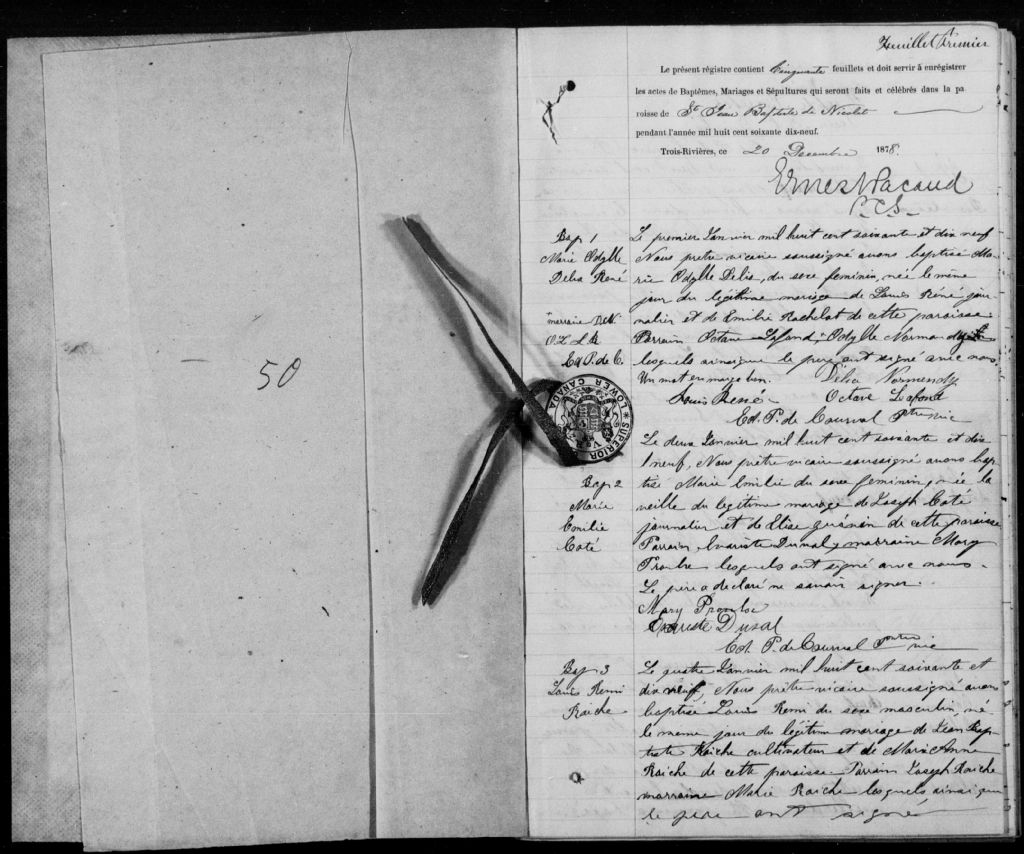 50
Feuillet Premier
Le présent régistre contient Cinquante feuillets et doit servir à enrégistrer
les actes de Baptêmes, Mariages et Sépultures qui seront faits et célébrés dans la pa
roisse de St Jean Baptiste de Nicolet
pendant l'année mil huit cent soixante dix-neuf.
Trois-Rivières, ce 20 Decembre 1878.
Ernest Pacaud
P.C.S.
SUPERIOR LOWER CANADA
Bap 1
Marie Odylle
Delia René
marraine D.N.
O.L. L.R.
Ed P. de C.
Le premier Janvier mil huit cent soixante et dix neuf
Nous prêtre vicaire soussigné avons baptisé Ma-
rie Odylle Délia, du sexe feminin, née le même
jour du légitime mariage de Louis Réné jour-
nalier et de Emilie Rachelot de cette paroisse
Parrain Octave Lafond, Odylle Normandy
lesquels ainsi que le père ont signé avec nous
Un mot en marge bon. Délia Normendy
Louis René Octave Lafond
Ed. P. de Courval Ptre vic
Bap 2
Marie
Emilie
Coté
Le deux Janvier mil huit cent soixante et dix
neuf, Nous prêtre vicaire soussigné avons bap-
tisé Marie Emilie du sexe feminin, née la
veille du legitime mariage de Joseph Coté
journalier et de Elise de cette paroisse
Parrain Evariste Duval, marraine Mary
lesquels ont signé avec nous.
Le père a declaré ne savoir signer.
Mary
Evariste Duval
Ed. P. de Courval Ptre vic
Bap 3
Louis Remi
Raiche
Le quatre Janvier mil huit cent soixante et
dix neuf, Nous prêtre vicaire soussigné avons
baptisé Louis Remi du sexe masculin, né
le meme jour du légitime mariage de Jean Bap-
tiste Raiche cultivateur et de Marie Anne
Raiche de cette paroisse Parrain Joseph Raiche
marraine Marie Raiche lesquels ainsi que
le père ont signé